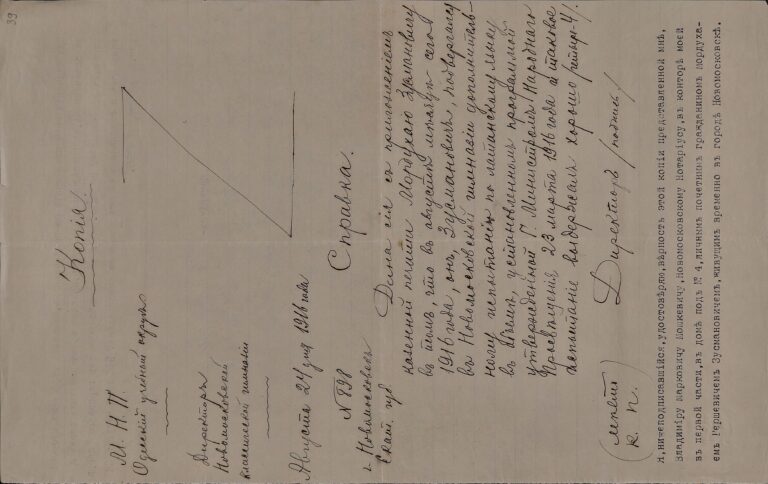 39
Копія.
М. Н. П.
Одесскій учебный округъ
Директоръ
Новомосковской
классической гимназіи
Августа 24 дня 1916 года
№ 898
г. Новомосковскъ
Екат. губ.
Справка.
Дана сія съ приложеніемъ
казенной печати Мордухаю Зусмановичу
въ томъ, что въ августѣ мѣсяцѣ сего
1916 года, онъ, Зусмановичъ, подвергался
въ Новомосковской гимназіи дополнитель-
ному испытанію по латинскому языку
въ объемѣ, установленномъ программой
утвержденной Г. Министромъ Народнаго
Просвѣщенія 23 марта 1916 года и таковое
испытаніе выдержалъ хорошо /четыре-4/.
(мѣсто
к. п.)
Директоръ /подпись/
Я, нижеподписавшійся, удостовѣряю, вѣрность этой копіи представленной мнѣ,
Владиміру Марковичу Йошкевичу, Новомосковскому Нотаріусу, въ конторѣ моей
въ первой части, въ домѣ подъ № 4, личнымъ почетнымъ гражданиномъ Мордуха-
емъ Гершевичемъ Зусмановичемъ, живущимъ временно въ городѣ Новомосковскѣ.